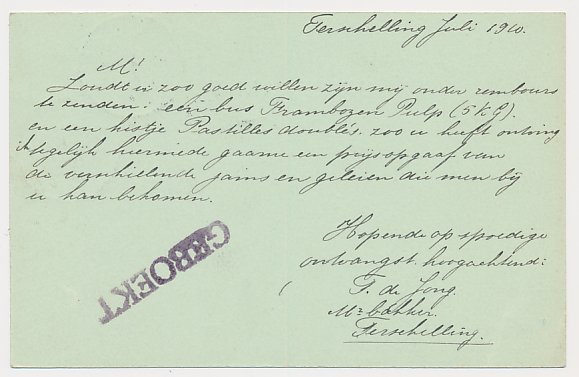 Terschelling Juli 1910.
M!
Zoudt u zoo goed willen zijn mij onder rembours
te zenden: een bus Frambozen Pulp (5 KG).
en een kistje Pastilles doublés, zoo u heeft ontving
ik tegelijk hiermede gaarne een prijsopgaaf van
de verschillende jams en geleien die men bij
u kan bekomen.
Hopende op spoedige
ontvangst. hoogachtend:
T. de Jong.
Mr. bakker.
Terschelling.
GEBOEKT